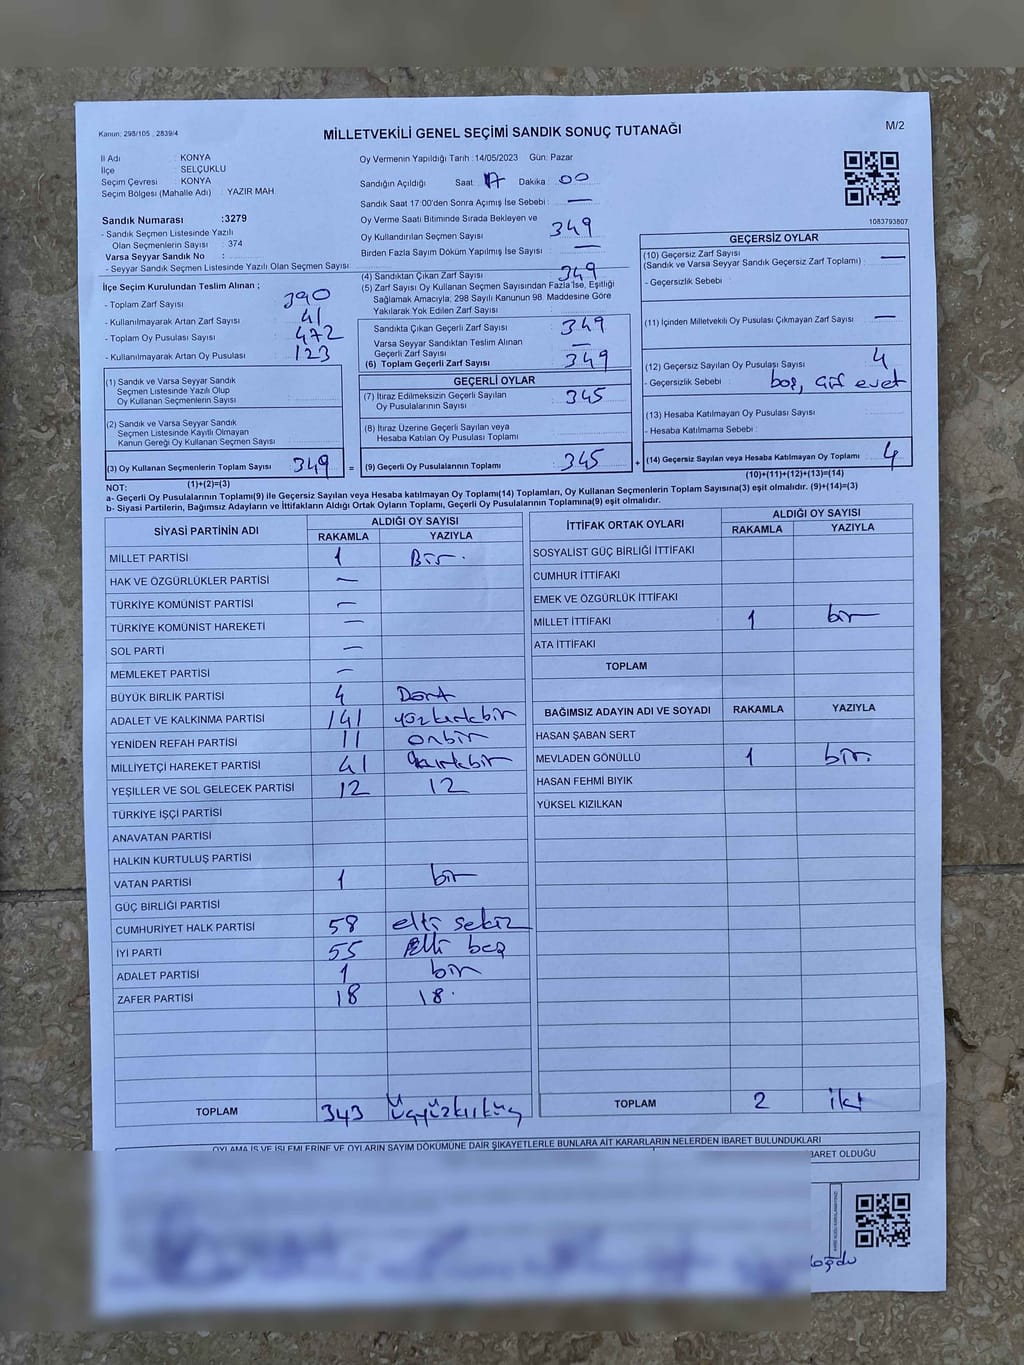 Kanun: 298/105 , 2839/4
MİLLETVEKİLİ GENEL SEÇİMİ SANDIK SONUÇ TUTANAĞI
M/2
İl Adı : KONYA
İlçe : SELÇUKLU
Seçim Çevresi : KONYA
Seçim Bölgesi (Mahalle Adı) : YAZIR MAH.
Sandık Numarası :3279
- Sandık Seçmen Listesinde Yazılı
Olan Seçmenlerin Sayısı : 374
Varsa Seyyar Sandık No :
- Seyyar Sandık Seçmen Listesinde Yazılı Olan Seçmen Sayısı
İlçe Seçim Kurulundan Teslim Alınan ;
- Toplam Zarf Sayısı : 390
- Kullanılmayarak Artan Zarf Sayısı : 41
- Toplam Oy Pusulası Sayısı : 472
- Kullanılmayarak Artan Oy Pusulası : 123
(1) Sandık ve Varsa Seyyar Sandık
Seçmen Listesinde Yazılı Olup
Oy Kullanan Seçmenlerin Sayısı
(2) Sandık ve Varsa Seyyar Sandık
Seçmen Listesinde Kayıtlı Olmayan
Kanun Gereği Oy Kullanan Seçmen Sayısı
(3) Oy Kullanan Seçmenlerin Toplam Sayısı 349
(1)+(2)=(3)
Oy Vermenin Yapıldığı Tarih : 14/05/2023 Gün: Pazar
Sandığın Açıldığı Saat : 17 Dakika : 00
Sandık Saat 17:00'den Sonra Açımış İse Sebebi : —
Oy Verme Saati Bitiminde Sırada Bekleyen ve
Oy Kullandırılan Seçmen Sayısı : 349
Birden Fazla Sayım Döküm Yapılmış İse Sayısı : —
(4) Sandıktan Çıkan Zarf Sayısı : 349
(5) Zarf Sayısı Oy Kullanan Seçmen Sayısından Fazla İse, Eşitliği
Sağlamak Amacıyla; 298 Sayılı Kanunun 98. Maddesine Göre
Yakılarak Yok Edilen Zarf Sayısı :
Sandıkta Çıkan Geçerli Zarf Sayısı : 349
Varsa Seyyar Sandıktan Teslim Alınan
Geçerli Zarf Sayısı : —
(6) Toplam Geçerli Zarf Sayısı : 349
GEÇERLİ OYLAR
(7) İtiraz Edilmeksizin Geçerli Sayılan
Oy Pusulalarının Sayısı : 345
(8) İtiraz Üzerine Geçerli Sayılan veya
Hesaba Katılan Oy Pusulası Toplamı
= (9) Geçerli Oy Pusulalarının Toplamı : 345 +
1083793807
GEÇERSİZ OYLAR
(10) Geçersiz Zarf Sayısı
(Sandık ve Varsa Seyyar Sandık Geçersiz Zarf Toplamı) : —
- Geçersizlik Sebebi :
(11) İçinden Milletvekili Oy Pusulası Çıkmayan Zarf Sayısı : —
(12) Geçersiz Sayılan Oy Pusulası Sayısı : 4
- Geçersizlik Sebebi : boş, çift evet
(13) Hesaba Katılmayan Oy Pusulası Sayısı :
- Hesaba Katılmama Sebebi :
(14) Geçersiz Sayılan veya Hesaba Katılmayan Oy Toplamı : 4
(10)+(11)+(12)+(13)=(14)
NOT:
a- Geçerli Oy Pusulalarının Toplamı(9) ile Geçersiz Sayılan veya Hesaba katılmayan Oy Toplamı(14) Toplamları, Oy Kullanan Seçmenlerin Toplam Sayısına(3) eşit olmalıdır. (9)+(14)=(3)
b- Siyasi Partilerin, Bağımsız Adayların ve İttifakların Aldığı Ortak Oyların Toplamı, Geçerli Oy Pusulalarının Toplamına(9) eşit olmalıdır.
SİYASİ PARTİNİN ADI ALDIĞI OY SAYISI
RAKAMLA YAZIYLA
MİLLET PARTİSİ 1 Bir.
HAK VE ÖZGÜRLÜKLER PARTİSİ —
TÜRKİYE KOMÜNİST PARTİSİ —
TÜRKİYE KOMÜNİST HAREKETİ —
SOL PARTİ —
MEMLEKET PARTİSİ —
BÜYÜK BİRLİK PARTİSİ 4 Dört
ADALET VE KALKINMA PARTİSİ 141 yüzkırkbir
YENİDEN REFAH PARTİSİ 11 onbir
MİLLİYETÇİ HAREKET PARTİSİ 41 kırkbir
YEŞİLLER VE SOL GELECEK PARTİSİ 12 12
TÜRKİYE İŞÇİ PARTİSİ
ANAVATAN PARTİSİ
HALKIN KURTULUŞ PARTİSİ
VATAN PARTİSİ 1 bir
GÜÇ BİRLİĞİ PARTİSİ
CUMHURİYET HALK PARTİSİ 58 elli sekiz
İYİ PARTİ 55 Elli beş
ADALET PARTİSİ 1 bir
ZAFER PARTİSİ 18 18.
TOPLAM 343 Üçyüzkırküç
İTTİFAK ORTAK OYLARI ALDIĞI OY SAYISI
RAKAMLA YAZIYLA
SOSYALİST GÜÇ BİRLİĞİ İTTİFAKI
CUMHUR İTTİFAKI
EMEK VE ÖZGÜRLÜK İTTİFAKI
MİLLET İTTİFAKI 1 bir
ATA İTTİFAKI
TOPLAM
BAĞIMSIZ ADAYIN ADI VE SOYADI RAKAMLA YAZIYLA
HASAN ŞABAN SERT
MEVLADEN GÖNÜLLÜ 1 bir.
HASAN FEHMİ BIYIK
YÜKSEL KIZILKAN
TOPLAM 2 iki
OYLAMA İŞ VE İŞLEMLERİNE VE OYLARIN SAYIM DÖKÜMÜNE DAİR ŞİKAYETLERLE BUNLARA AİT KARARLARIN NELERDEN İBARET BULUNDUKLARI
BARET OLDUĞU